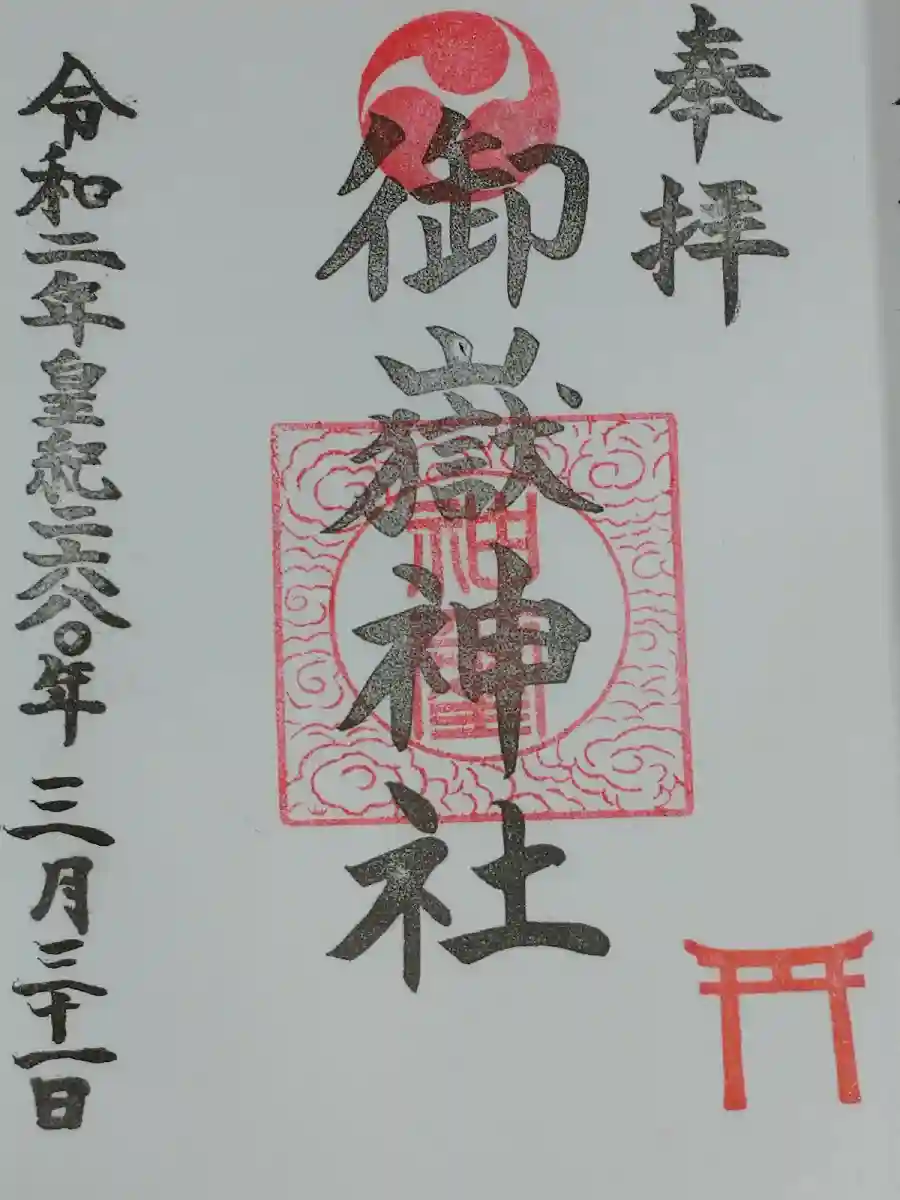 奉拝
御嶽神社
令和二年皇紀二六八〇年 三月三十一日